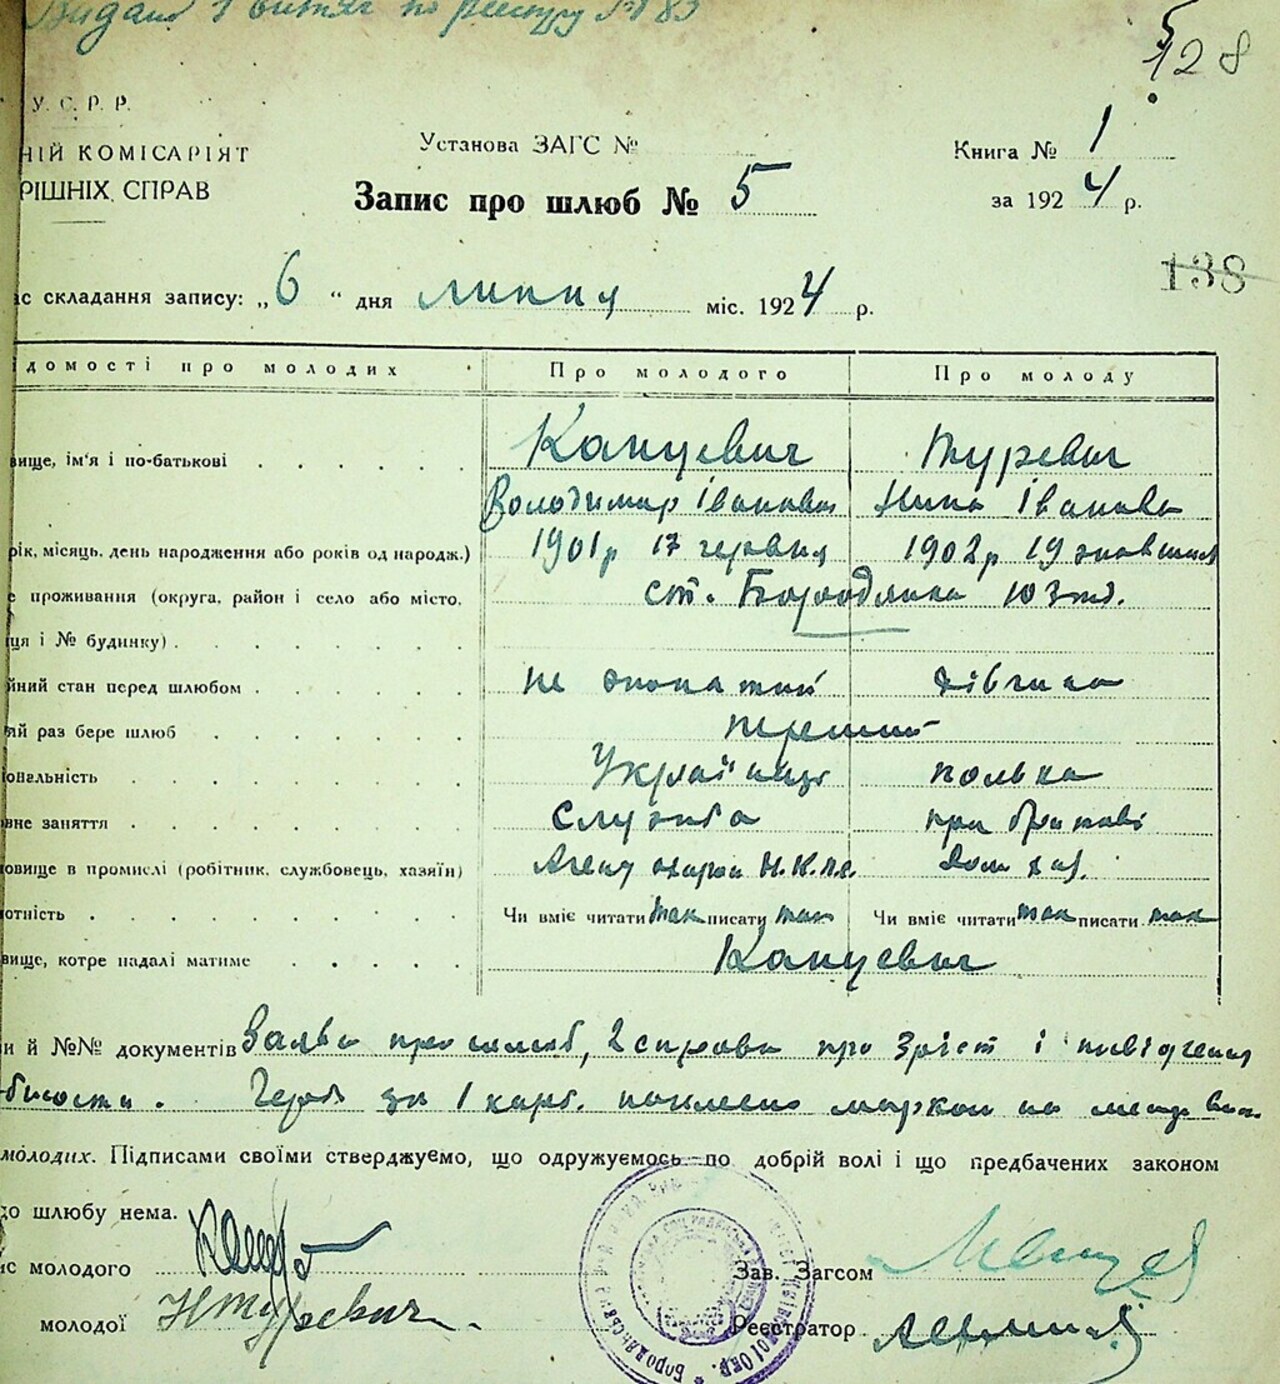 Видано 1 витяг по реєстру № 83
128
У. С. Р. Р.
НІЙ КОМІСАРІЯТ
РІШНІХ СПРАВ
Установа ЗАГС №
Книга № 1
Запис про шлюб № 5
за 1924 р.
138
ас складання запису: „6“ дня липня міс. 1924 р.
ідомості про молодих Про молодого Про молоду
вище, ім'я і по-батькові Канцевич Туревич
Володимир Іванович Нина Іванова
рік, місяць, день народження або років од народж.) 1901р 17 червня 1902р 19
е проживання (округа, район і село або місто, ст. Бородянка
ця і № будинку)
йний стан перед шлюбом не жонатий дівчина
ий раз бере шлюб перший
іональність Українець полька
вне заняття служба при
овище в промислі (робітник, службовець, хазяїн) Агент охорони
отність Чи вміє читати так писати так Чи вміє читати так писати так
вище, котре надалі матиме Канцевич
и й №№ документів Заява про шлюб, 2 справки про зріст і
Герб. за 1 карб. наклеено маркою на
молодих. Підписами своїми стверджуємо, що одружуємось по добрій волі і що предбачених законом
до шлюбу нема.
ис молодого
Зав. Загсом
молодої НТуревич
Реєстратор